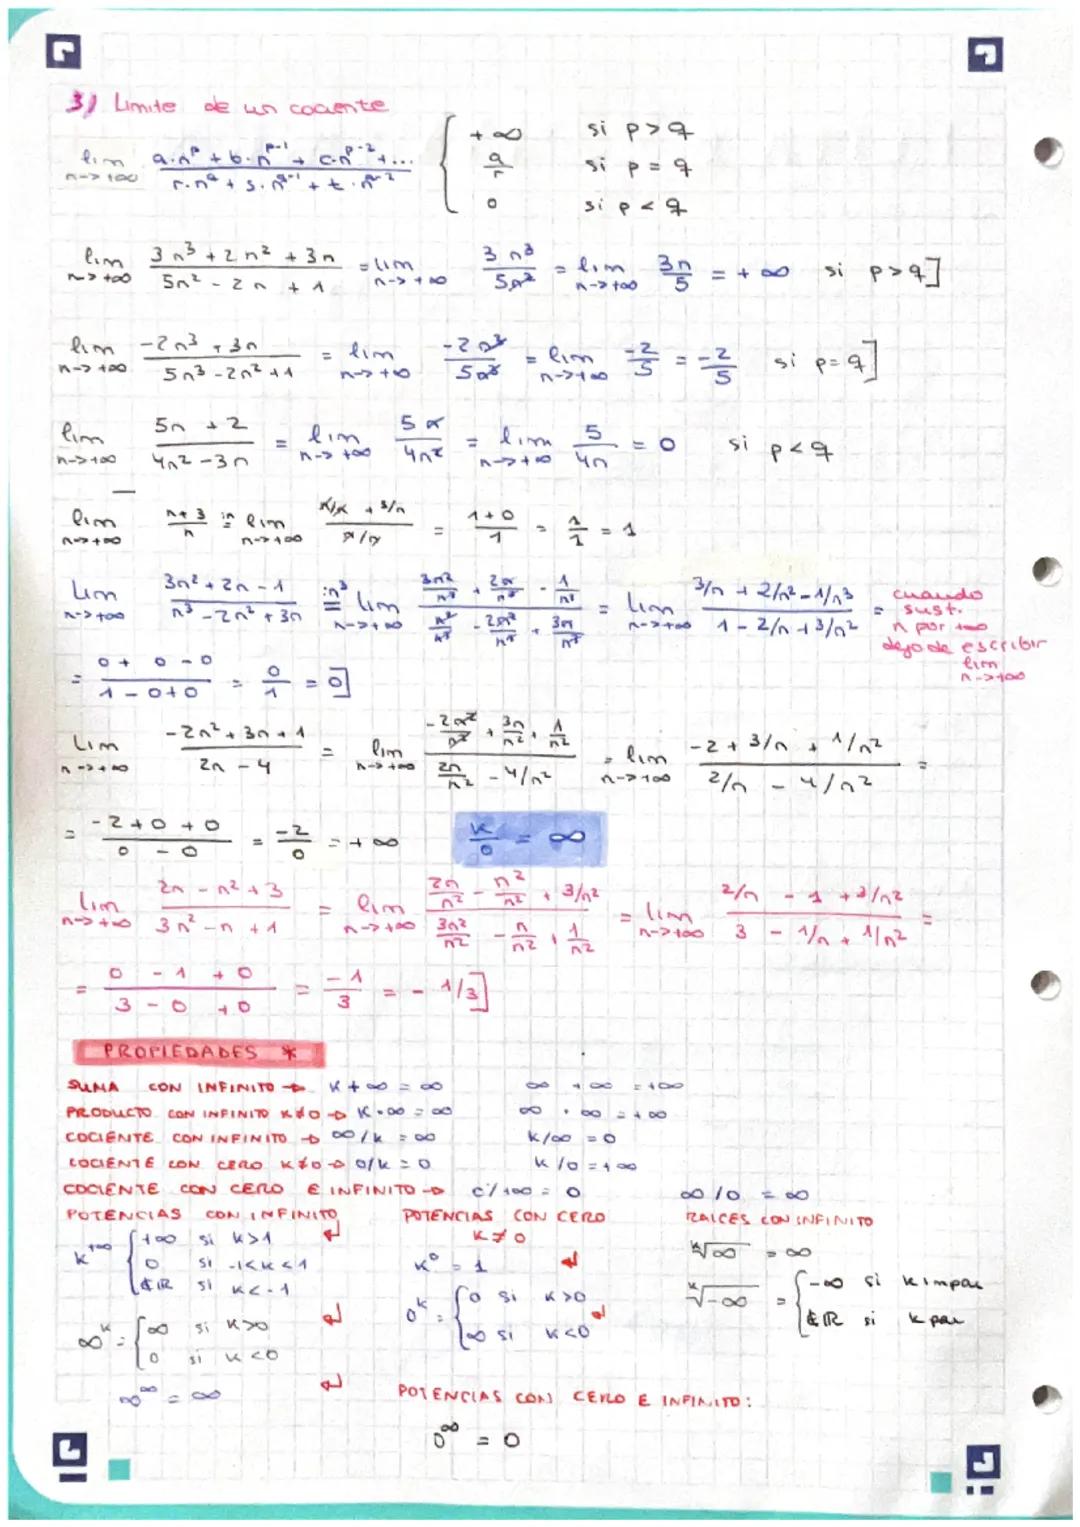 3) Limite de un cociente
lim n->+∞ (a·n^p + b·n^p-1 + c·n^p-2 + ...) / (r·n^q + s·n^q-1 + t·n^q-2) { +∞ si p>q
a/r si p = q
0 si p < q
lim n->+∞ (3n³ + 2n² + 3n) / (5n² - 2n + 1) = lim n->+∞ 3n³/5n² = lim n->+∞ 3n/5 = +∞ si p>q]
lim n->+∞ (-2n³ + 3n) / (5n³ - 2n² + 1) = lim n->+∞ -2n³/5n³ = lim n->+∞ -2/5 = -2/5 si p=q]
lim n->+∞ (5n + 2) / (4n² - 3n) = lim n->+∞ 5n/4n² = lim n->+∞ 5/4n = 0 si p<q
lim n->+∞ (n+3)/n :n = lim n->+∞ (n/n + 3/n) / (n/n) = (1+0)/1 = 1/1 = 1
lim n->+∞ (3n² + 2n - 1) / (n³ - 2n² + 3n) :n³ = lim n->+∞ (3n²/n³ + 2n/n³ - 1/n³) / (n³/n³ - 2n²/n³ + 3n/n³) = lim n->+∞ (3/n + 2/n² - 1/n³) / (1 - 2/n + 3/n²) =
cuando
sust.
n por +∞
dejo de escribir
lim n->+∞
= (0 + 0 - 0) / (1 - 0 + 0) = 0/1 = 0]
Lim n->+∞ (-2n² + 3n + 1) / (2n - 4) = lim n->+∞ (-2n²/n² + 3n/n² + 1/n²) / (2n/n² - 4/n²) = lim n->+∞ (-2 + 3/n + 1/n²) / (2/n - 4/n²) =
= (-2 + 0 + 0) / (0 - 0) = -2/0 = +∞ k/0 = ∞
lim n->+∞ (2n - n² + 3) / (3n² - n + 1) = lim n->+∞ (2n/n² - n²/n² + 3/n²) / (3n²/n² - n/n² + 1/n²) = lim n->+∞ (2/n - 1 + 3/n²) / (3 - 1/n + 1/n²) =
= (0 - 1 + 0) / (3 - 0 + 0) = -1/3 = - 1/3]
PROPIEDADES *
SUMA CON INFINITO → K + ∞ = ∞ ∞ + ∞ = +∞
PRODUCTO CON INFINITO K≠0 → K·∞ = ∞ ∞ · ∞ = +∞
COCIENTE CON INFINITO → ∞/k = ∞ k/∞ = 0
COCIENTE CON CERO K≠0 → 0/k = 0 k/0 = +∞
COCIENTE CON CERO E INFINITO → 0/+∞ = 0 ∞/0 = ∞
POTENCIAS CON INFINITO POTENCIAS CON CERO RAICES CON INFINITO
k^+∞ { +∞ si k>1 K≠0 ᵏ√∞ = ∞
0 si -1<K<1 K⁰ = 1
∉ℝ si K<-1
0^k = { 0 si K>0 ᵏ√-∞ = { -∞ si k impar
∞ si K<0 ∉ℝ si k par
∞^k = { ∞ si K>0
0 si K<0
∞^∞ = ∞
POTENCIAS CON CERO E INFINITO:
0^∞ = 0